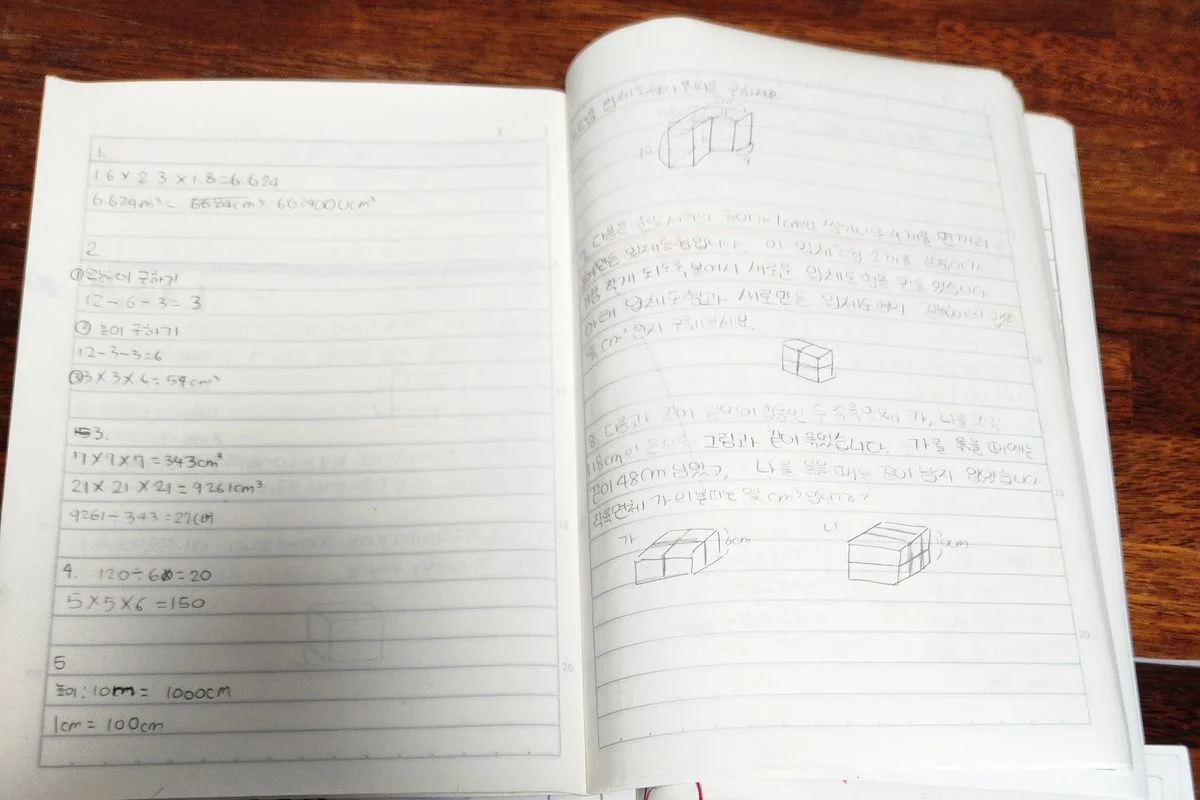 1.
1.6 × 2.3 × 1.8 = 6.624
6.624m³ =
2
① 구하기
12 - 6 - 3 = 3
② 높이 구하기
12 - 3 - 3 = 6
③ 3 × 3 × 6 = 54cm³
3.
7 × 7 × 7 = 343cm³
21 × 21 × 21 = 9261cm³
9261 ÷ 343 = 27
4. 120 ÷ 6 = 20
5 × 5 × 6 = 150
5
높이 : 10m = 1000cm
1cm = 100cm
20
입체도형의 부피를 구하시오
10
4
다음은 한 모서리의 길이가 1cm인 쌓기나무 4개를 면끼리
붙여 만든 입체도형입니다. 이 입체도형 2개를 겉넓이가
가장 작게 되도록 붙여서 새로운 입체도형을 만들었습니다
아래 입체도형과 새로 만든 입체도형의
몇 cm² 인지 구하보세요.
10
8. 다음과 같이 직육면체 가, 나를 각각
118cm인 끈으로 그림과 같이 묶었습니다. 가를 묶을 때에는
끈이 48cm 남았고, 나를 묶을 때는 끈이 남지 않았습니다
직육면체 가의 부피는 몇 cm³입니까?
가 6cm 나
20